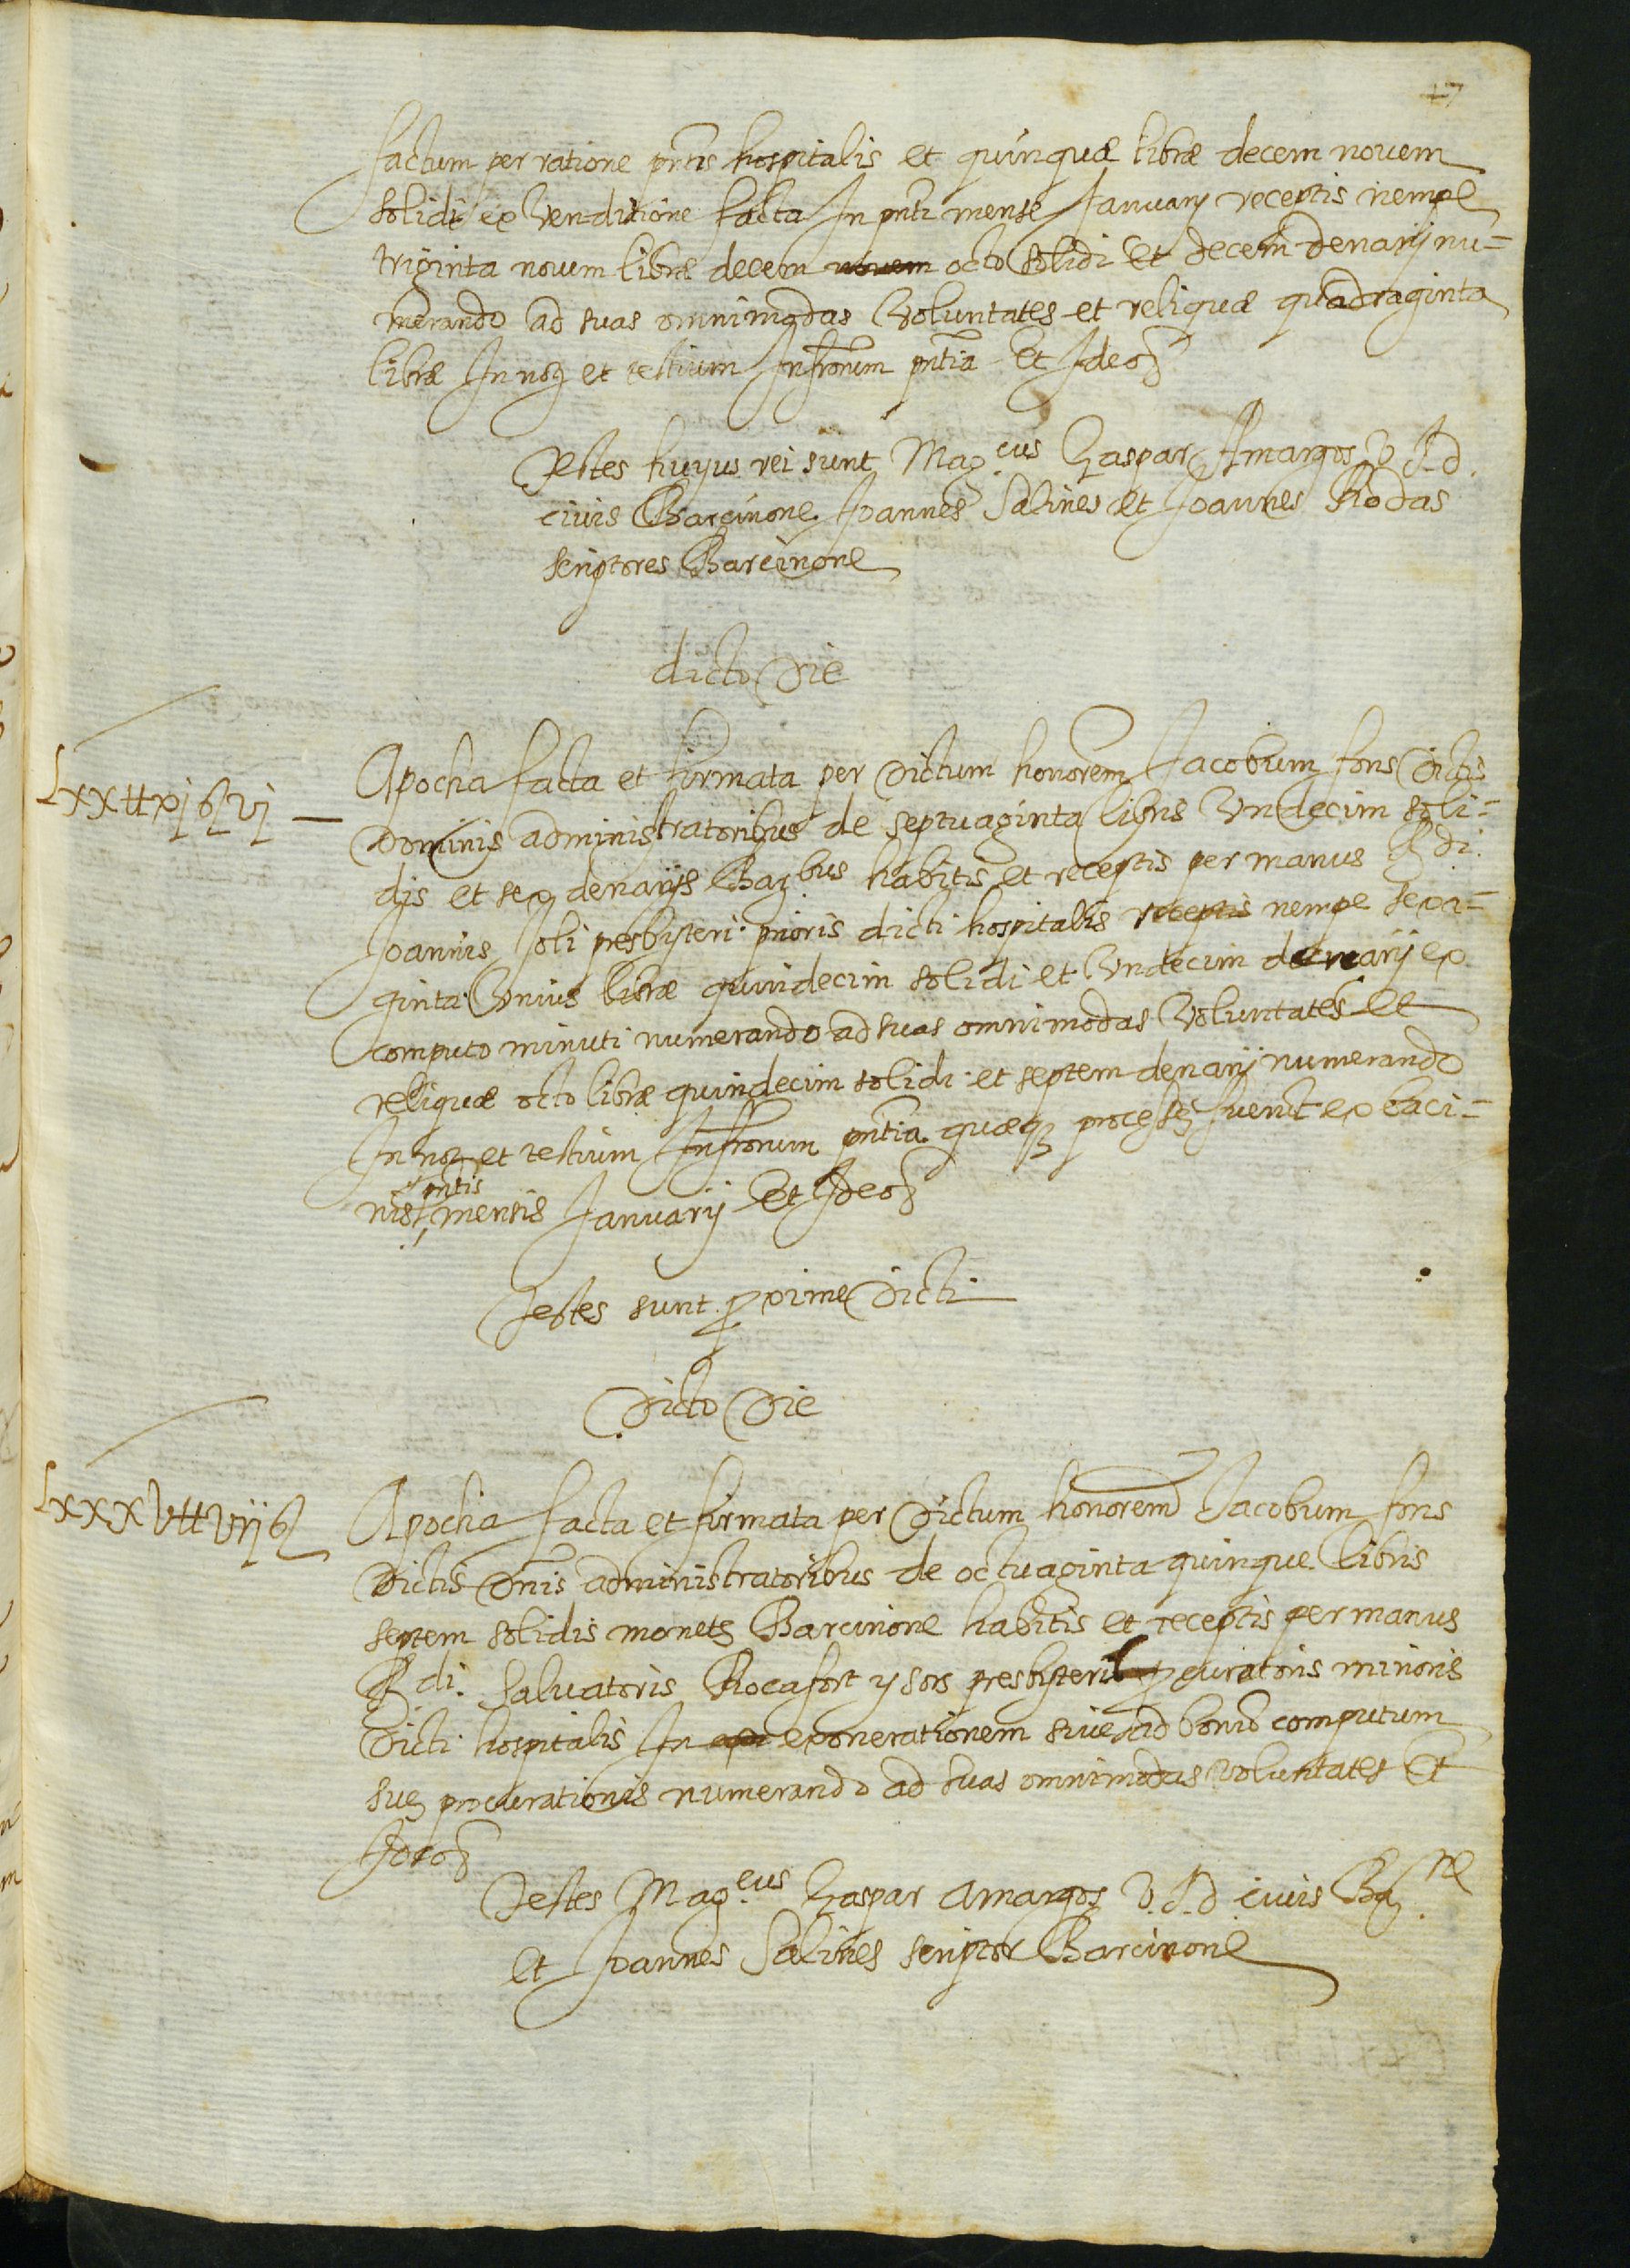 17
factum per ratione pntis hospitalis et quinquæ libræ decem novem
solidi ex Venditione facta In pnti mense Januarij receptis nempe
triginta novum libræ decem novem octo solidi et decem denarij nu=
merando ad suas omnimodas Voluntates et reliquæ quadraginta
libræ In noz et testium Infrorum pntia Et Ideo &
Testes huyus rei sunt Mag.cus Gaspar Amargos V.J.d.
civis Barcinone Joannes Salines et Joannes Rodas
scriptores Barcinone
dicto Die
Lxx tt xj ß vj —
Apocha facta et firmata per Dictum honorem Jacobum fons Dictis
Dominis administratoribus de septuaginta libris Undecim soli=
dis et sex denarijs Barbus habitis et receptis per manus Rdi.
Joannis Joli presbyteri prioris dicti hospitalis receptis nempe sexa=
ginta Unius libræ quindecim solidi et Undecim denarij ex
computo minuti numerando ad suas omnimodas Voluntates et
reliquæ octo libræ quindecim solidi et septem denarij numerando
In noz et testium Infrorum pntia quæq3 processe fuerut ex baci=
nis pntis mensis Januarij Et Ideo &
Testes sunt pxime Dicti
Dicto Die
Lxxx V tt Vij ß
Apocha facta et firmata per Dictum honorem Jacobum fons
Dictis Dnis administratoribus de octuaginta quinque libris
septem solidis monetę Barcinone habitis et receptis per manus
Rdi. Salvatoris Rocafort y sors presbyteri pcuratoris minoris
Dicti hospitalis In exonerationem sive ad bonū computum
suę procurationis numerando ad suas omnimodas Voluntates Et
Ideo &
Testes Mag.cus Gaspar Amargos V.J.d civis Barne
et Joannes Salines scriptor Barcinone